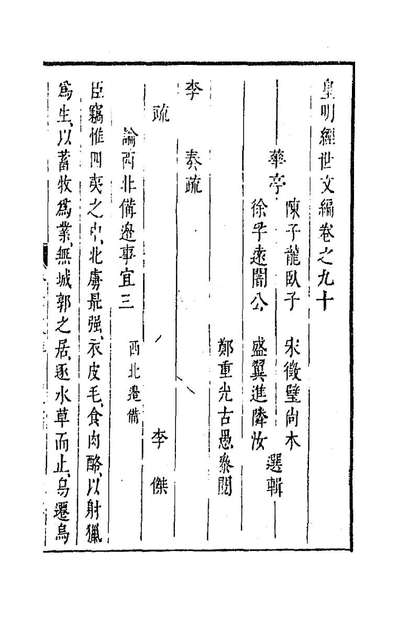 皇明經世文編卷之九十
華亭
陳子龍臥子 宋徵璧尚木
徐孚遠闇公 盛翼進隣汝
選輯
鄭重光古愚參閱
李 奏疏
疏 李傑
論西北備邊事宜三 西北邊備
臣竊惟四夷之中、北虜最强、衣皮毛、食肉酪、以射獵
爲生、以蓄牧爲業、無城郭之居、逐水草而止、烏還烏